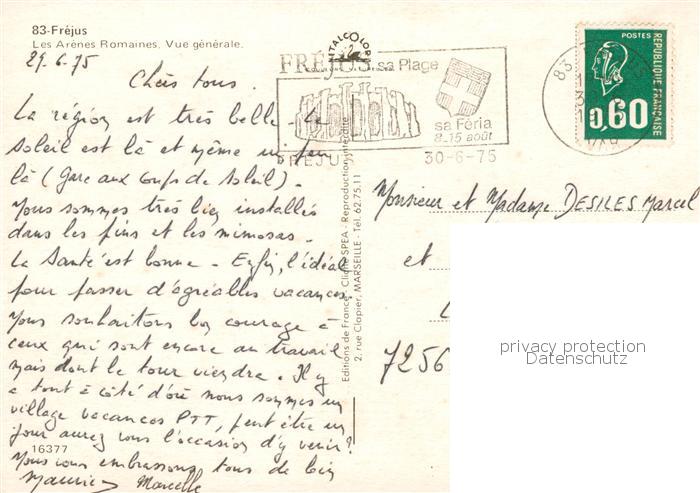 83-Fréjus
Les Arènes Romaines. Vue générale.
29.6.75
Chers tous.
La région est très belle - Le
soleil est là et même un peu
là (Gare aux coups de soleil).
Nous sommes très bien installés
dans les pins et les mimosas.
La santé est bonne - Enfin, l'idéal
pour passer d'agréables vacances.
Nous souhaitons bon courage à
ceux qui sont encore au travail
mais dont le tour viendra. Il y
a tout à côté d'où nous sommes un
village vacances PTT, peut être un
jour aurez vous l'occasion d'y venir?
16377
Nous vous embrassons tous de loin
Maurice Marcelle
ITALCOLOR
FRÉJUS sa Plage
sa Féria
8-15 août
FREJUS 30-6-75
83
VAR
POSTES
REPUBLIQUE FRANÇAISE
0,60
Editions de France, Cliché SPEA - Reproduction interdite
2, rue Clapier, MARSEILLE - Tél. 62.75.11
Monsieur et Madame DESILES Marcel
et
7256
privacy protection
Datenschutz